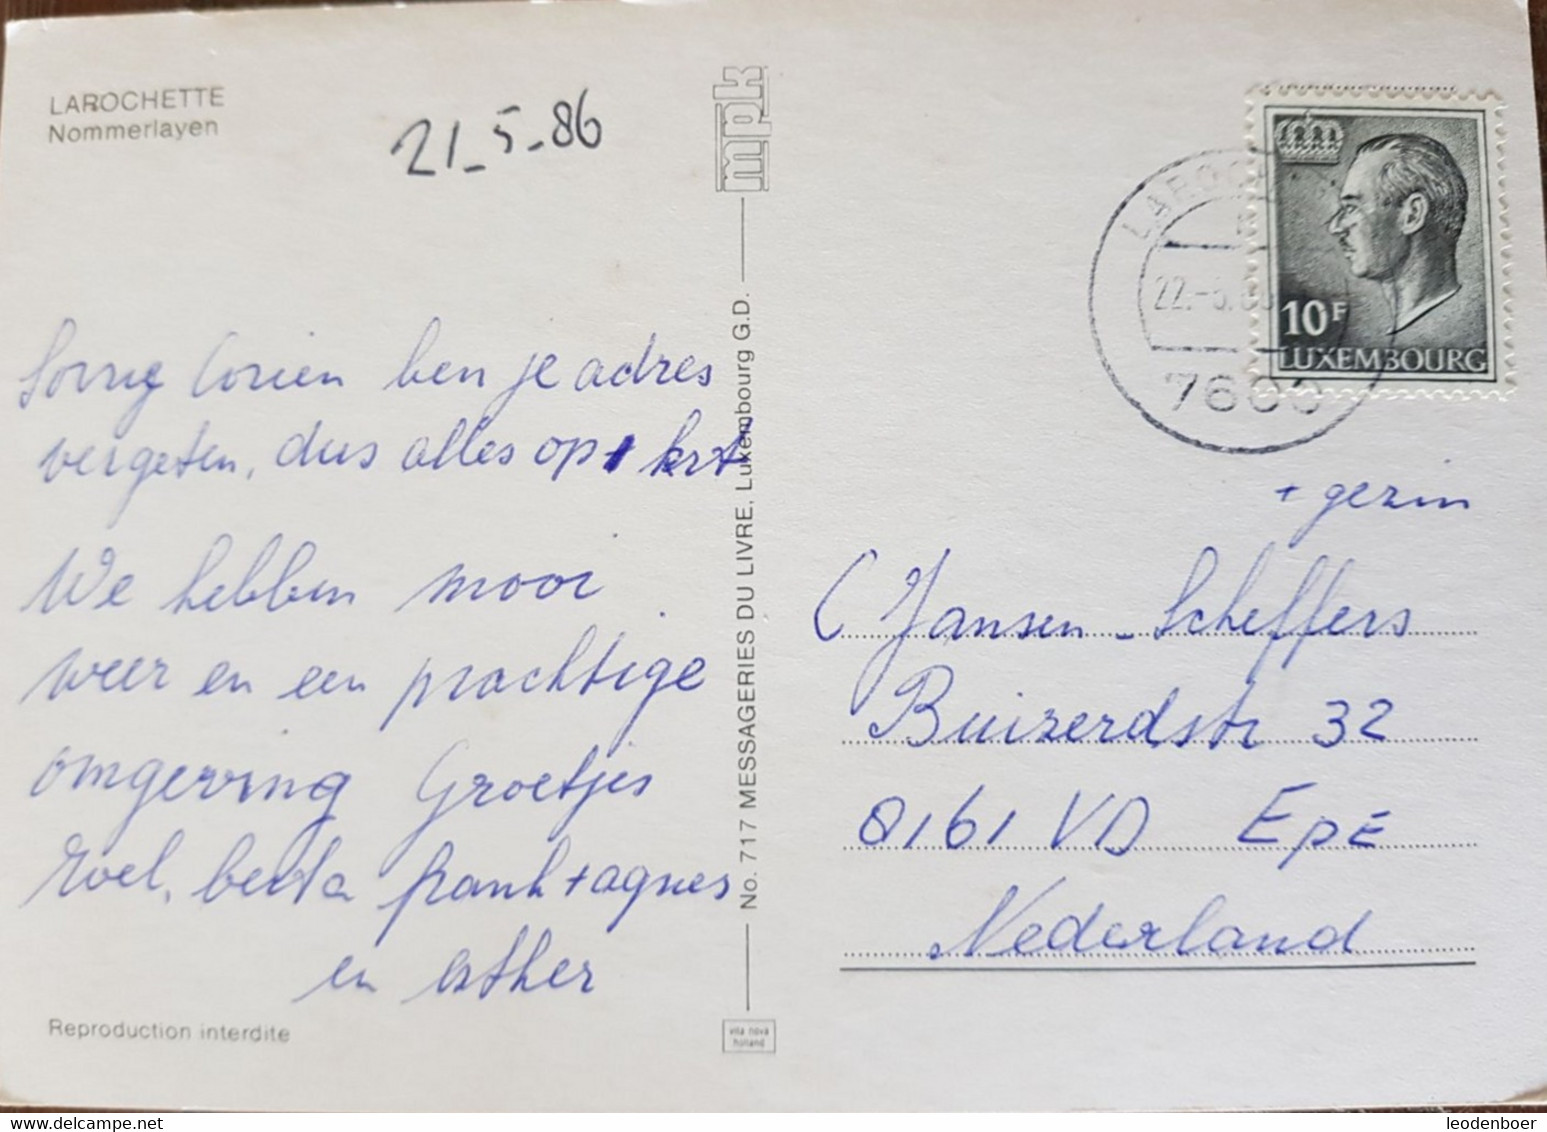 LAROCHETTE
Nommerlayen
21-5-86
Sorry Corien ben je adres
vergeten, dus alles op 1 krt
We hebben mooi
weer en een prachtige
omgeving Groetjes
Roel, berta frank + agnes
en esther
Reproduction interdite
mpk
No. 717 MESSAGERIES DU LIVRE, Luxembourg G.D.
vita nova
holland
22.-5.86
7600
10F
LUXEMBOURG
+ gezin
C Jansen-Scheffers
Buizerdstr 32
8161 VD EpE
Nederland
leodenboer